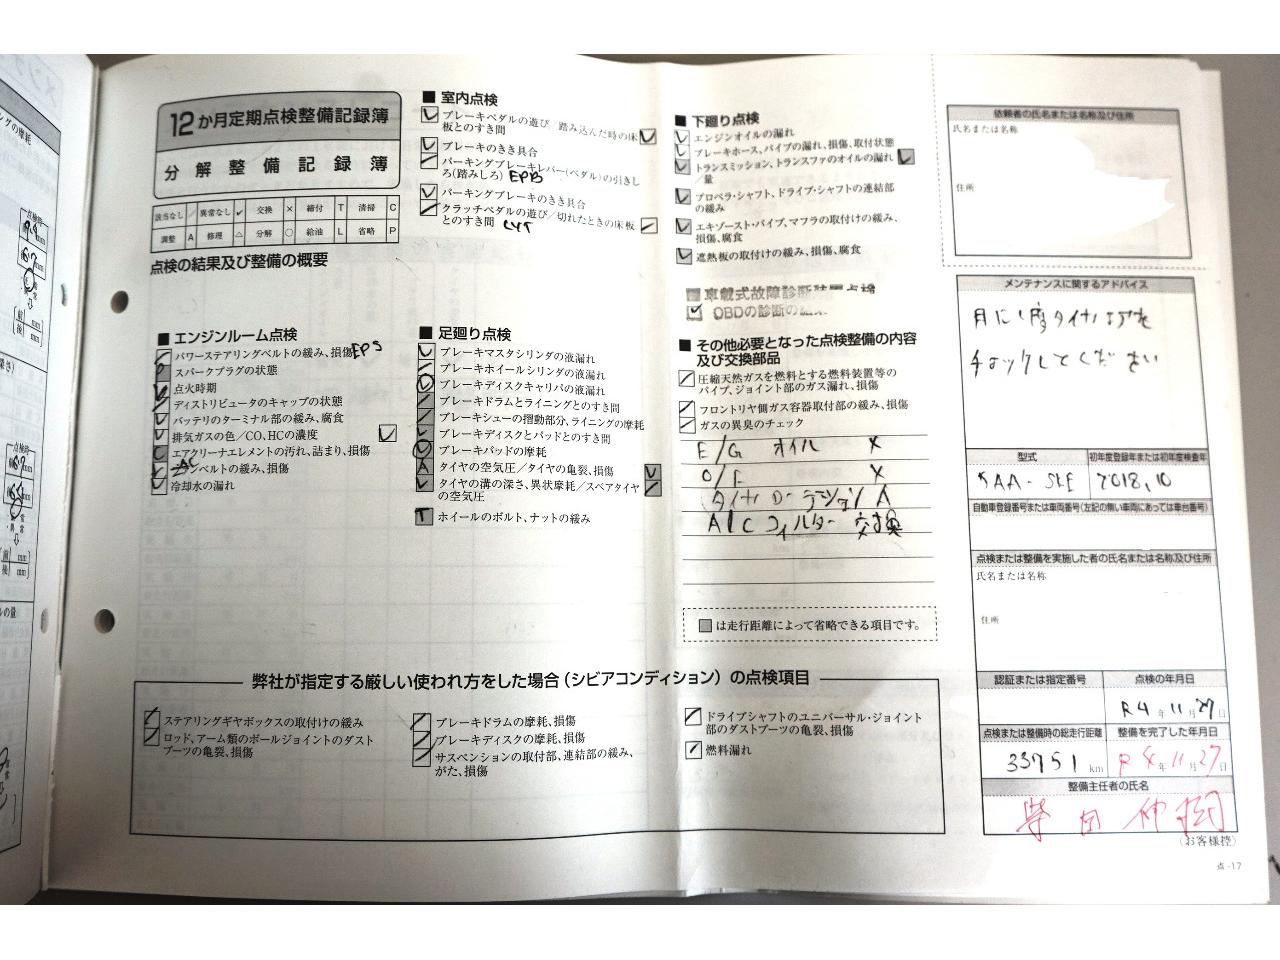 12か月定期点検整備記録簿
分解整備記録簿
該当なし / 異常なし ✓ 交換 × 締付 T 清掃 C
調整 A 修理 △ 分解 ○ 給油 L 省略 P
点検の結果及び整備の概要
■ エンジンルーム点検
パワーステアリングベルトの緩み、損傷 EPS
スパークプラグの状態
点火時期
ディストリビュータのキャップの状態
バッテリのターミナル部の緩み、腐食
排気ガスの色/CO、HCの濃度
エアクリーナエレメントの汚れ、詰まり、損傷
ベルトの緩み、損傷
冷却水の漏れ
■ 室内点検
ブレーキペダルの遊び/踏み込んだ時の床
板とのすき間
ブレーキのきき具合
パーキングブレーキレバー(ペダル)の引きし
ろ(踏みしろ) EPB
パーキングブレーキのきき具合
クラッチペダルの遊び/切れたときの床板
とのすき間 CVT
■ 足廻り点検
ブレーキマスタシリンダの液漏れ
ブレーキホイールシリンダの液漏れ
ブレーキディスクキャリパの液漏れ
ブレーキドラムとライニングとのすき間
ブレーキシューの摺動部分、ライニングの摩耗
ブレーキディスクとパッドとのすき間
ブレーキパッドの摩耗
タイヤの空気圧/タイヤの亀裂、損傷
タイヤの溝の深さ、異状摩耗/スペアタイヤ
の空気圧
ホイールのボルト、ナットの緩み
■ 下廻り点検
エンジンオイルの漏れ
ブレーキホース、パイプの漏れ、損傷、取付状態
トランスミッション、トランスファのオイルの漏れ
/量
プロペラ・シャフト、ドライブ・シャフトの連結部
の緩み
エキゾースト・パイプ、マフラの取付けの緩み、
損傷、腐食
遮熱板の取付けの緩み、損傷、腐食
車載式故障診断装置点検
OBDの診断の結果
■ その他必要となった点検整備の内容
及び交換部品
圧縮天然ガスを燃料とする燃料装置等の
パイプ、ジョイント部のガス漏れ、損傷
フロントリヤ側ガス容器取付部の緩み、損傷
ガスの異臭のチェック
E/G オイル ×
O/E ×
タイヤローテーション A
A/C フィルター 交換
は走行距離によって省略できる項目です。
弊社が指定する厳しい使われ方をした場合(シビアコンディション)の点検項目
ステアリングギヤボックスの取付けの緩み
ロッド、アーム類のボールジョイントのダスト
ブーツの亀裂、損傷
ブレーキドラムの摩耗、損傷
ブレーキディスクの摩耗、損傷
サスペンションの取付部、連結部の緩み、
がた、損傷
ドライブシャフトのユニバーサル・ジョイント
部のダストブーツの亀裂、損傷
燃料漏れ
依頼者の氏名または名称及び住所
氏名または名称
住所
メンテナンスに関するアドバイス
月に1度タイヤエアを
チェックしてください
型式 初年度登録年または初年度検査年
5AA-SKE 2018,10
自動車登録番号または車両番号(左記の無い車両にあっては車台番号)
点検または整備を実施した者の氏名または名称及び住所
氏名または名称
住所
認証または指定番号 点検の年月日
R4年11月27日
点検または整備時の総走行距離 整備を完了した年月日
33751 km R4年11月27日
整備主任者の氏名
柴田伸樹
(お客様控)
点-17